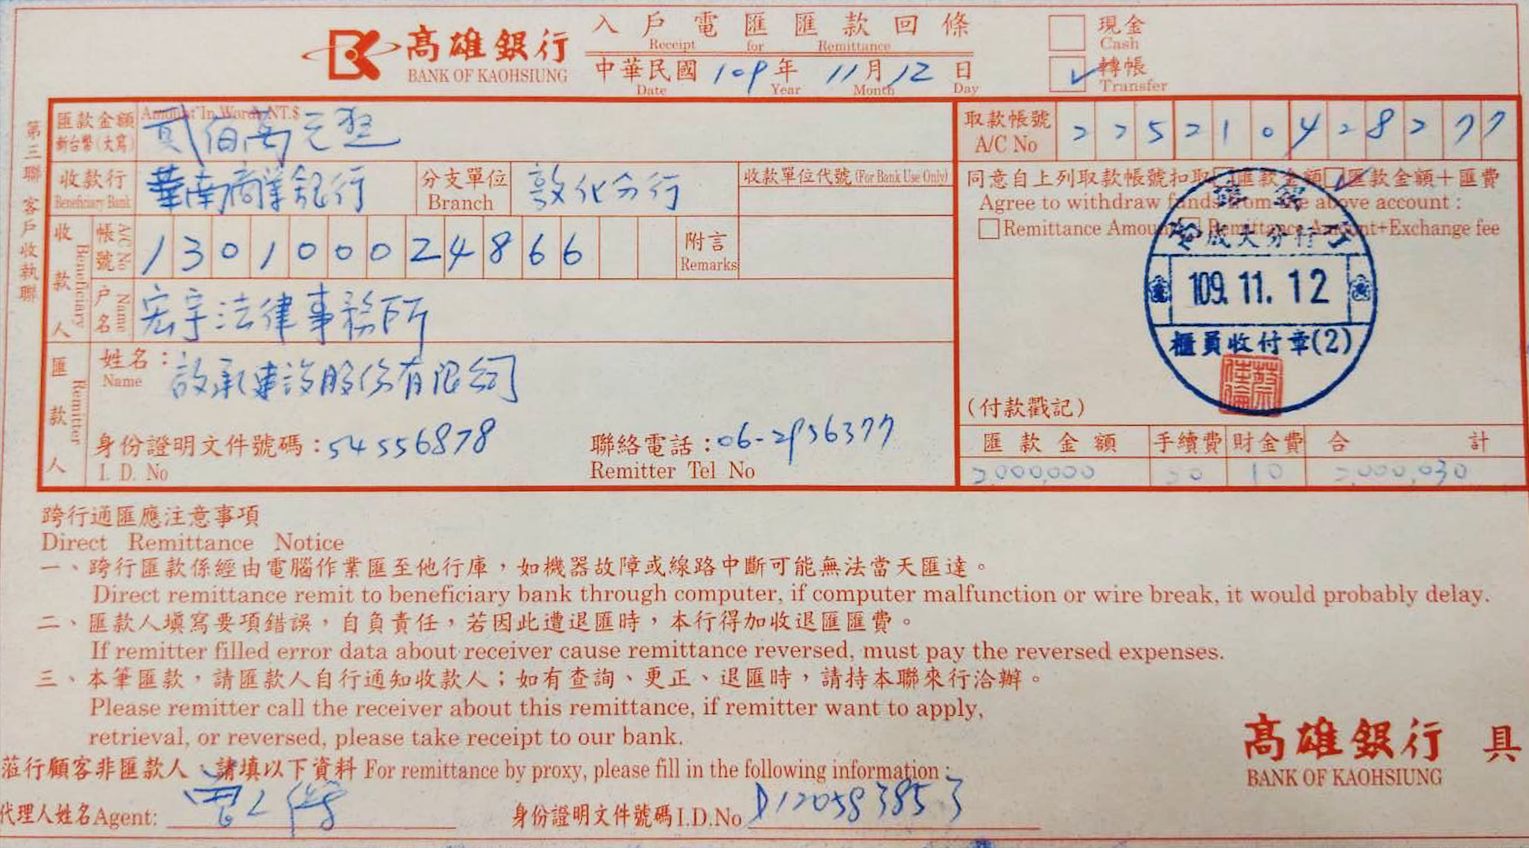 高雄銀行
BANK OF KAOHSIUNG
入戶電匯匯款回條
Receipt for Remittance
中華民國109年11月12日
Date Year Month Day
現金
Cash
✓轉帳
Transfer
第三聯 客戶收執聯
匯款金額 Amount In Words NT.$
新台幣(大寫) 貳佰萬元整
取款帳號 225210428277
A/C No
收款行 華南商業銀行
Beneficiary Bank
分支單位 敦化分行
Branch
收款單位代號(For Bank Use Only)
同意自上列取款帳號扣取□匯款金額☑匯款金額+匯費
Agree to withdraw funds from the above account :
□Remittance Amount □Remittance Amount+Exchange fee
收款人 Beneficiary
帳號 A/C No 130100024866
附言
Remarks
戶名 Name 宏宇法律事務所
成大分行
109.11.12
櫃員收付章(2)
匯款人 Remitter
姓名: 啟承建設股份有限公司
Name
身份證明文件號碼:54556878
I. D. No
聯絡電話:06-2956377
Remitter Tel No
(付款戳記)
匯款金額 手續費 財金費 合計
2000,000 20 10 2,000,030
跨行通匯應注意事項
Direct Remittance Notice
一、跨行匯款係經由電腦作業匯至他行庫,如機器故障或線路中斷可能無法當天匯達。
Direct remittance remit to beneficiary bank through computer, if computer malfunction or wire break, it would probably delay.
二、匯款人填寫要項錯誤,自負責任,若因此遭退匯時,本行得加收退匯匯費。
If remitter filled error data about receiver cause remittance reversed, must pay the reversed expenses.
三、本筆匯款,請匯款人自行通知收款人;如有查詢、更正、退匯時,請持本聯來行洽辦。
Please remitter call the receiver about this remittance, if remitter want to apply,
retrieval, or reversed, please take receipt to our bank.
高雄銀行 具
BANK OF KAOHSIUNG
蒞行顧客非匯款人、請填以下資料 For remittance by proxy, please fill in the following information :
代理人姓名Agent:
身份證明文件號碼I.D.No D120593853